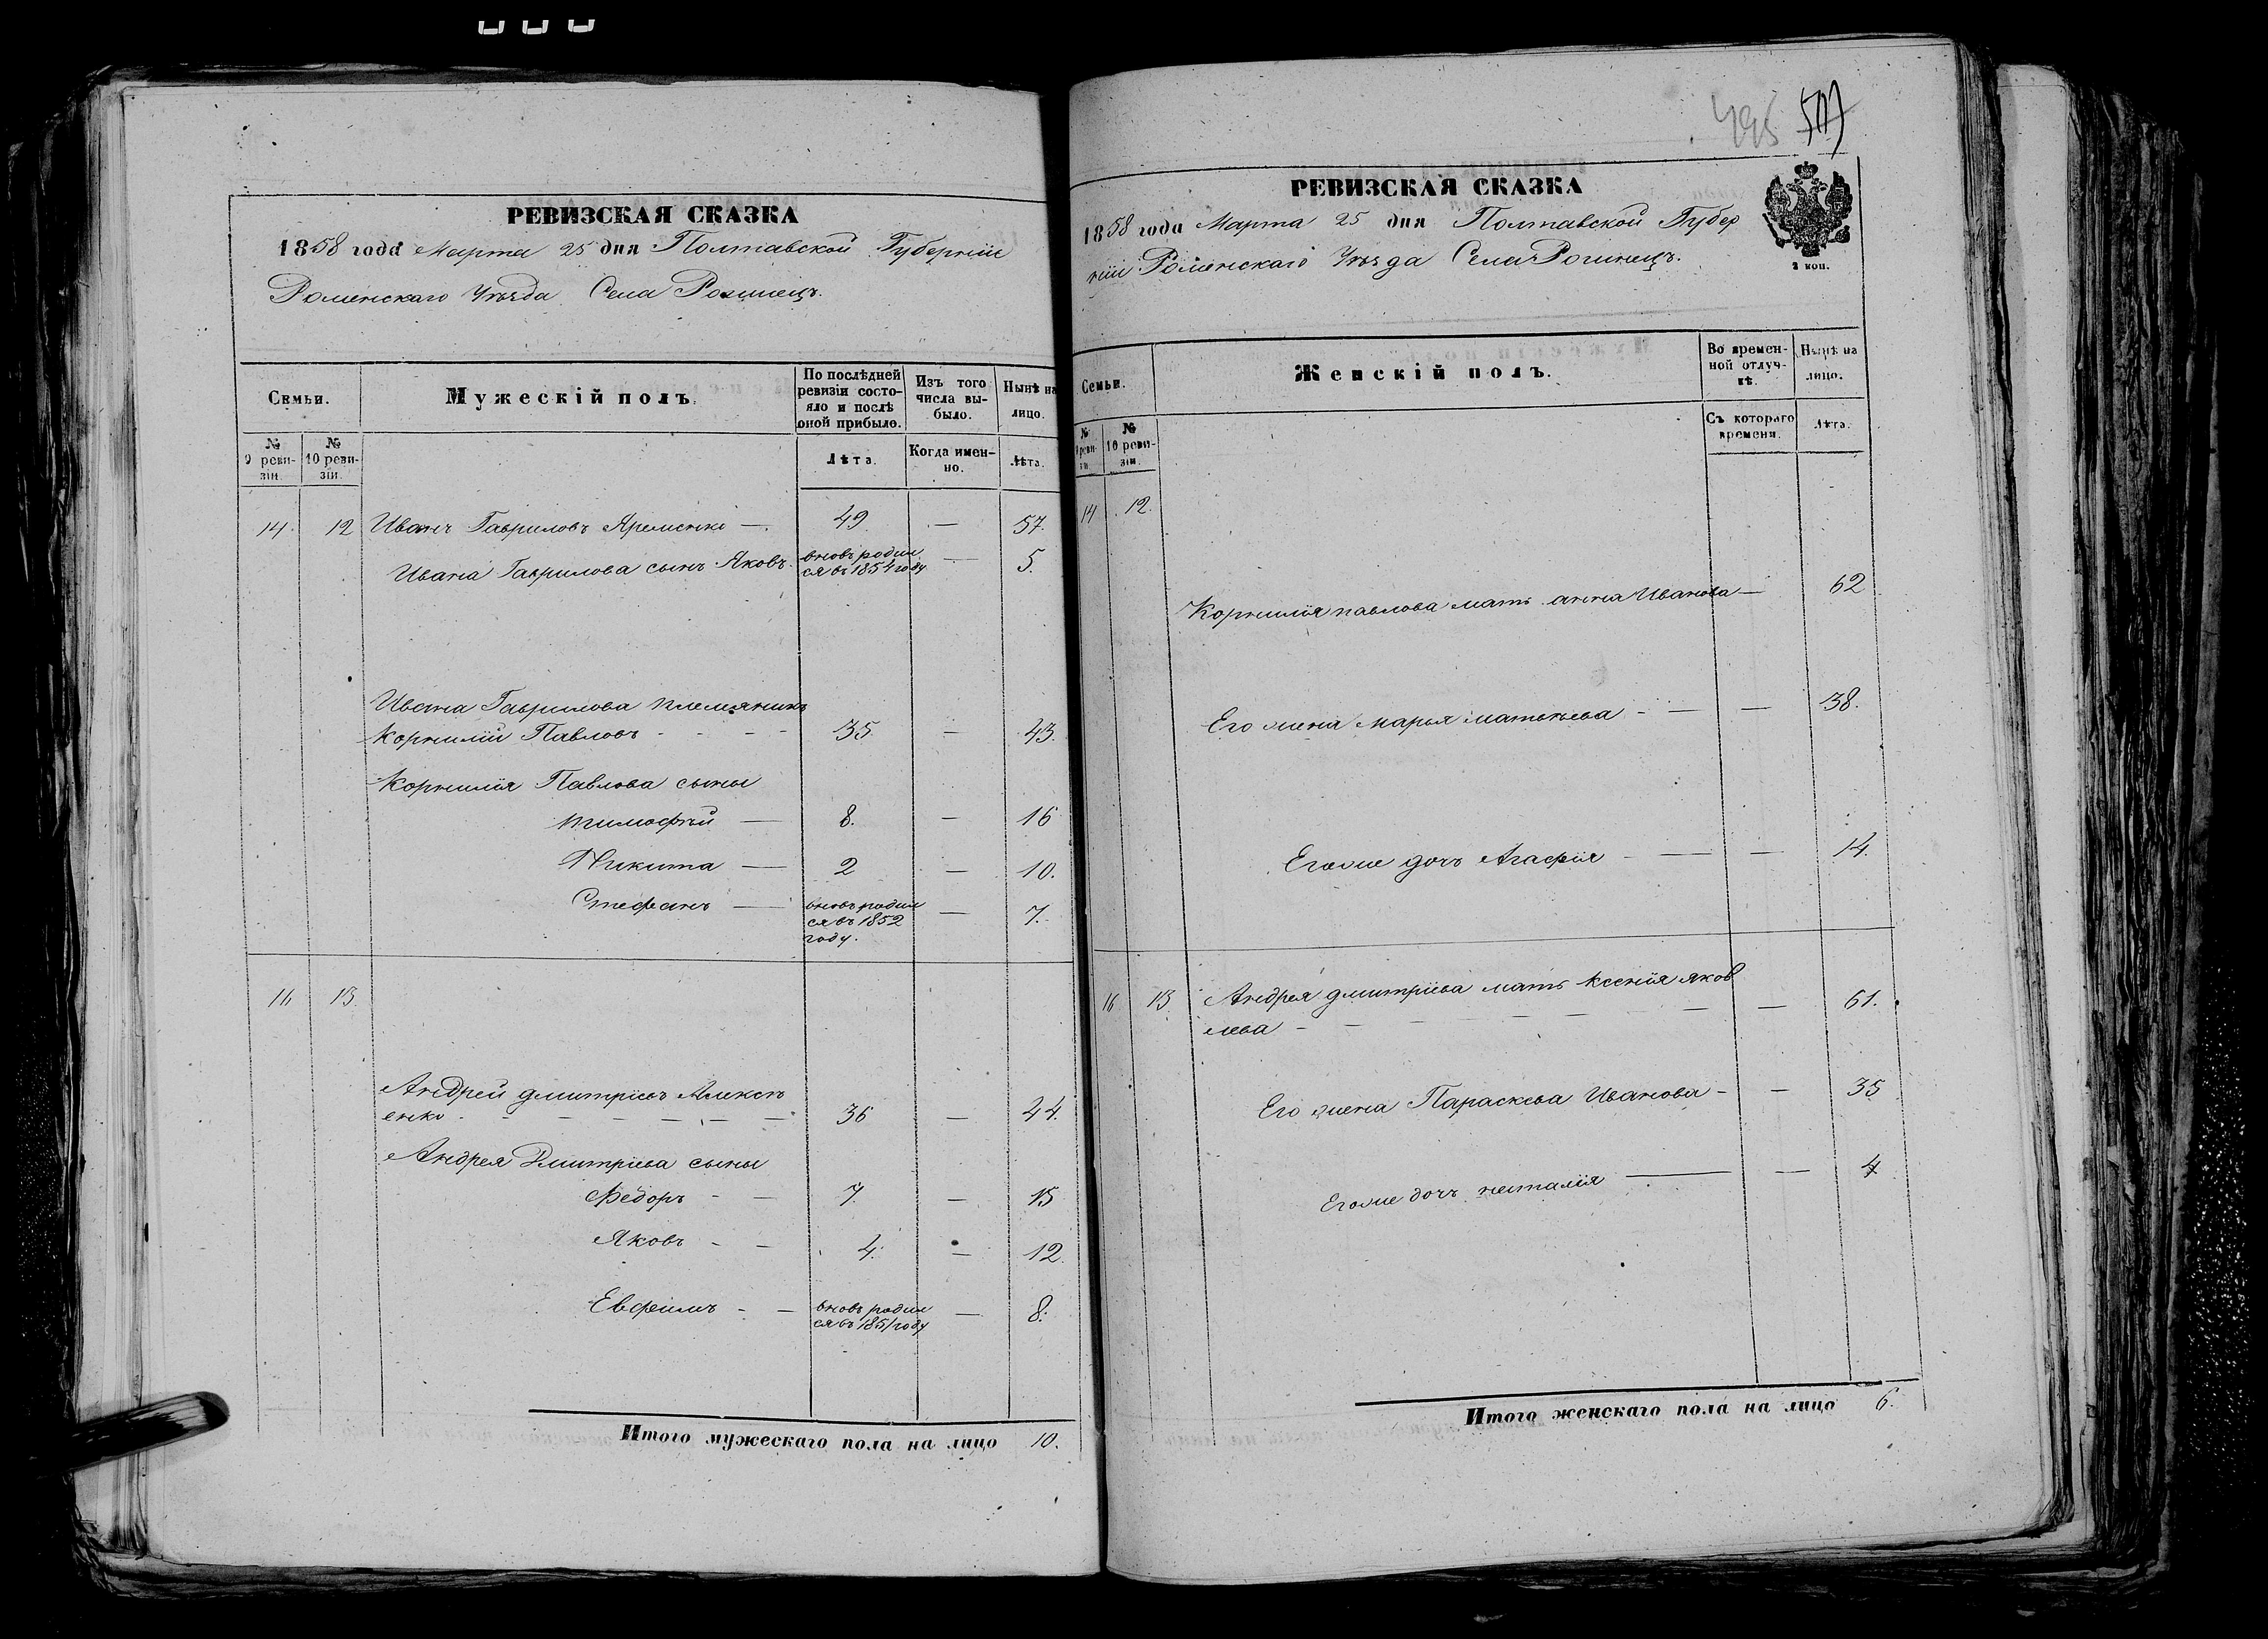 РЕВИЗСКАЯ СКАЗКА
1858 года Марта 25 дня Полтавской Губерніи
Роменскаго Уѣзда Села Рогинецъ.
Семьи.
Мужескій полъ.
По послѣдней ревизіи состояло и послѣ оной прибыло.
Изъ того числа выбыло.
Нынѣ на лицо.
№ 9 ревизіи.
№ 10 ревизіи.
Лѣта.
Когда именно.
Лѣта.
14. 12 Иванъ Гавриловъ Яременко —. 49 — 57.
Ивана Гаврилова сынъ Яковъ. вновь родил
ся въ 1854 году — 5.
Ивана Гаврилова племяникъ
Корнилій Павловъ - - - - 35 — 43.
Корнилія Павлова сыны
тимофѣй — 8. — 16
Никита — 2 — 10.
Стефанъ — вновь родил
ся въ 1852
году. — 7.
16 13.
Андрей дмитріевъ Алексѣ
енко - — — — — — 36 — 44.
Андрея Дмитріева сыны
Федоръ - — 7 — 15
Яковъ - — 4. — 12
Евфимъ - — вновь родил
ся въ 1851 году — 8.
Итого мужескаго пола на лицо 10.
495 507
РЕВИЗСКАЯ СКАЗКА
1858 года Марта 25 дня Полтавской Губер
ніи Роменскаго Уѣзда Села Рогинецъ.
2 коп.
Семьи.
Женскій полъ.
Во временной отлучкѣ.
Нынѣ на лицо.
№ 9 ревизіи.
№ 10 ревизіи.
Съ котораго времени.
Лѣта.
14 12.
Корнилія павлова мать анна Иванова — 62
Его жена марья матвѣева - — — 38.
Егоже дочь Агафія - — — 14.
16 13. Андрея дмитріева мать ксенія яков
лева - — — — — — — 61.
Его жена Параскева Иванова - — 35
Егоже дочь наталія — — 4
Итого женскаго пола на лицо 6.